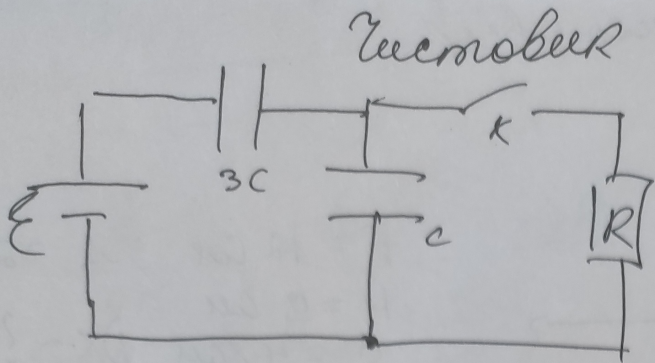 Чистовик
3C
K
ℰ
C
R